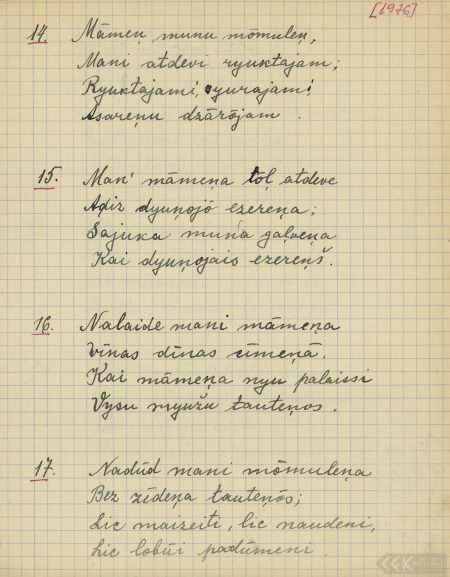 [1976]
14. Māmeņ, munu mōmuleņ,
Mani atdevi ryuktajam;
Ryuktajami, syurajami,
Asareņu dzārōjam.
15. Man' māmeņa tōļ atdeve
Aįz dyuņojō ezereņa;
Sajuka muna gaļveņa
Kai dyuņojais ezereņš.
16. Nalaide mani māmeņa
Vīnas dīnas cīmeņā.
Kai māmeņa nyu palaissi
Vysu myužu tauteņos.
17. Nadūd mani mōmuleņa
Bez zīdeņa tauteņōs;
Lic maizeiti, lic naudeni,
Lic lobūi padūmeni.